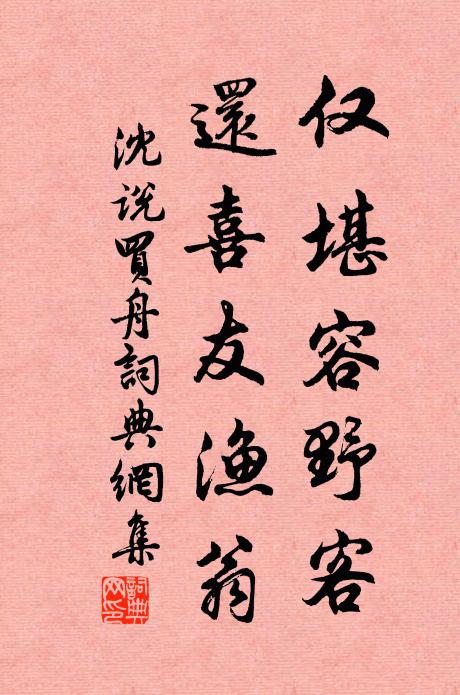 仅堪容野客
還喜友漁翁
沈说買舟詞典網集
詞典
网印